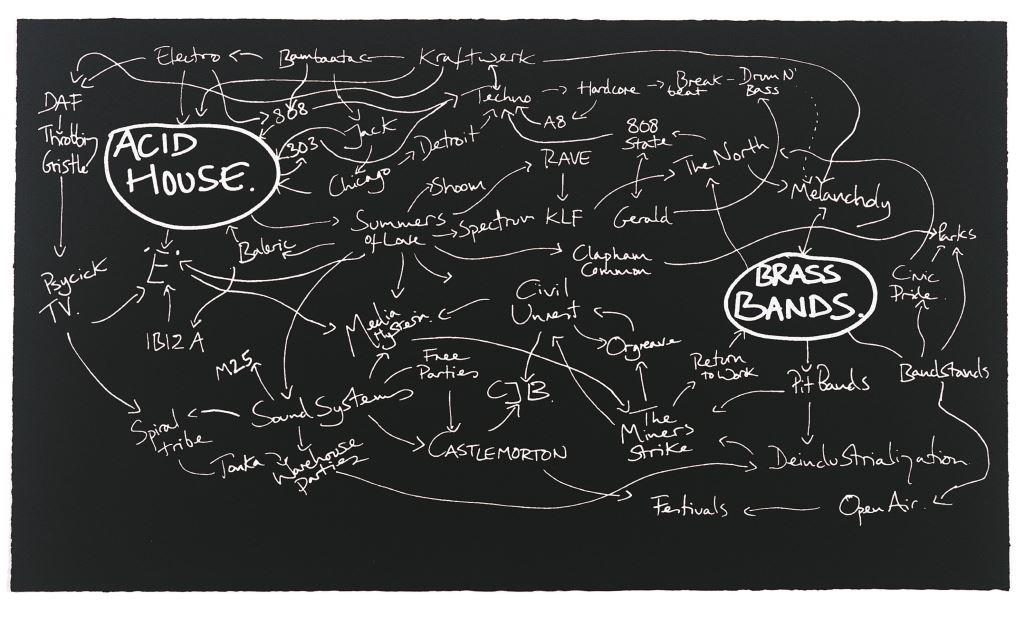 Electro
Bambaataa
Kraftwerk
DAF
808
Techno
Hardcore
Break
beat
Drum N'
Bass
Throbbing
Gristle
ACID
HOUSE.
303
Jack
Detroit
A8
808
State
Chicago
RAVE
The North
Shoom
Melancholy
Summers
of Love
Spectrum
KLF
Gerald
Baleric
Clapham
Common
Parks
E.
BRASS
BANDS.
Civic
Pride
Psycick
TV.
Civil
Unrest
IBIZA
Media
Hysteria
Orgreave
M25
Free
Parties
Return
to Work
Pit Bands
Bandstands
CJB.
Sound Systems
Spiral
tribe
The
Miners
Strike
Tonka
Warehouse
Parties
CASTLEMORTON
Deindustrialization
Festivals
Open Air.